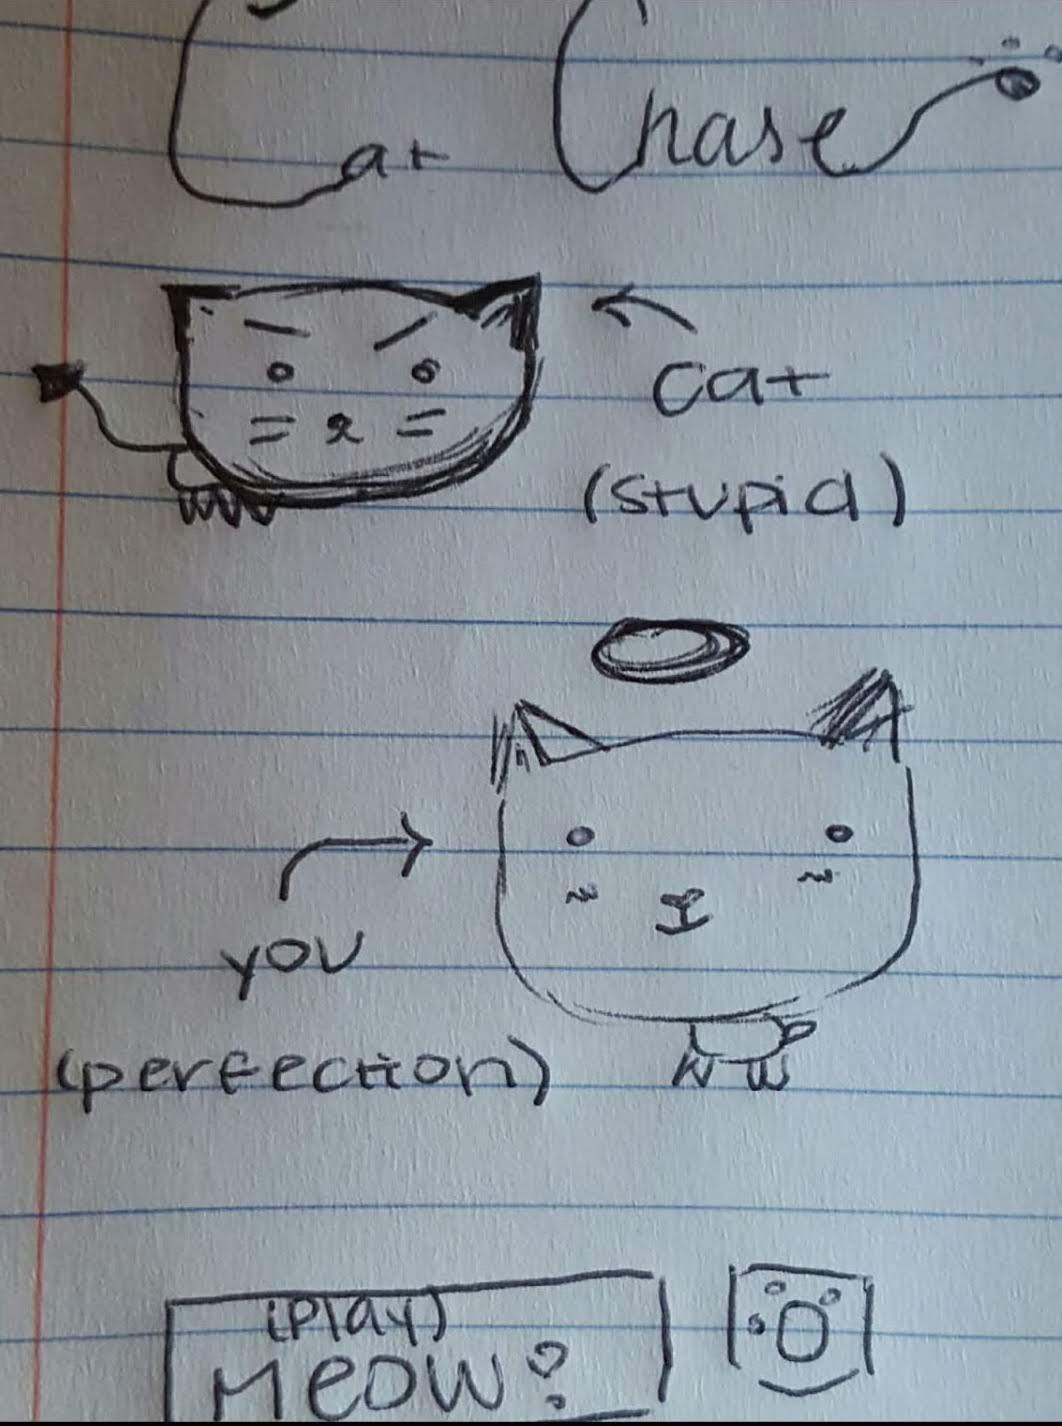 Cat Chase
Cat
(stupid)
you
(perfection)
(Play)
Meow?